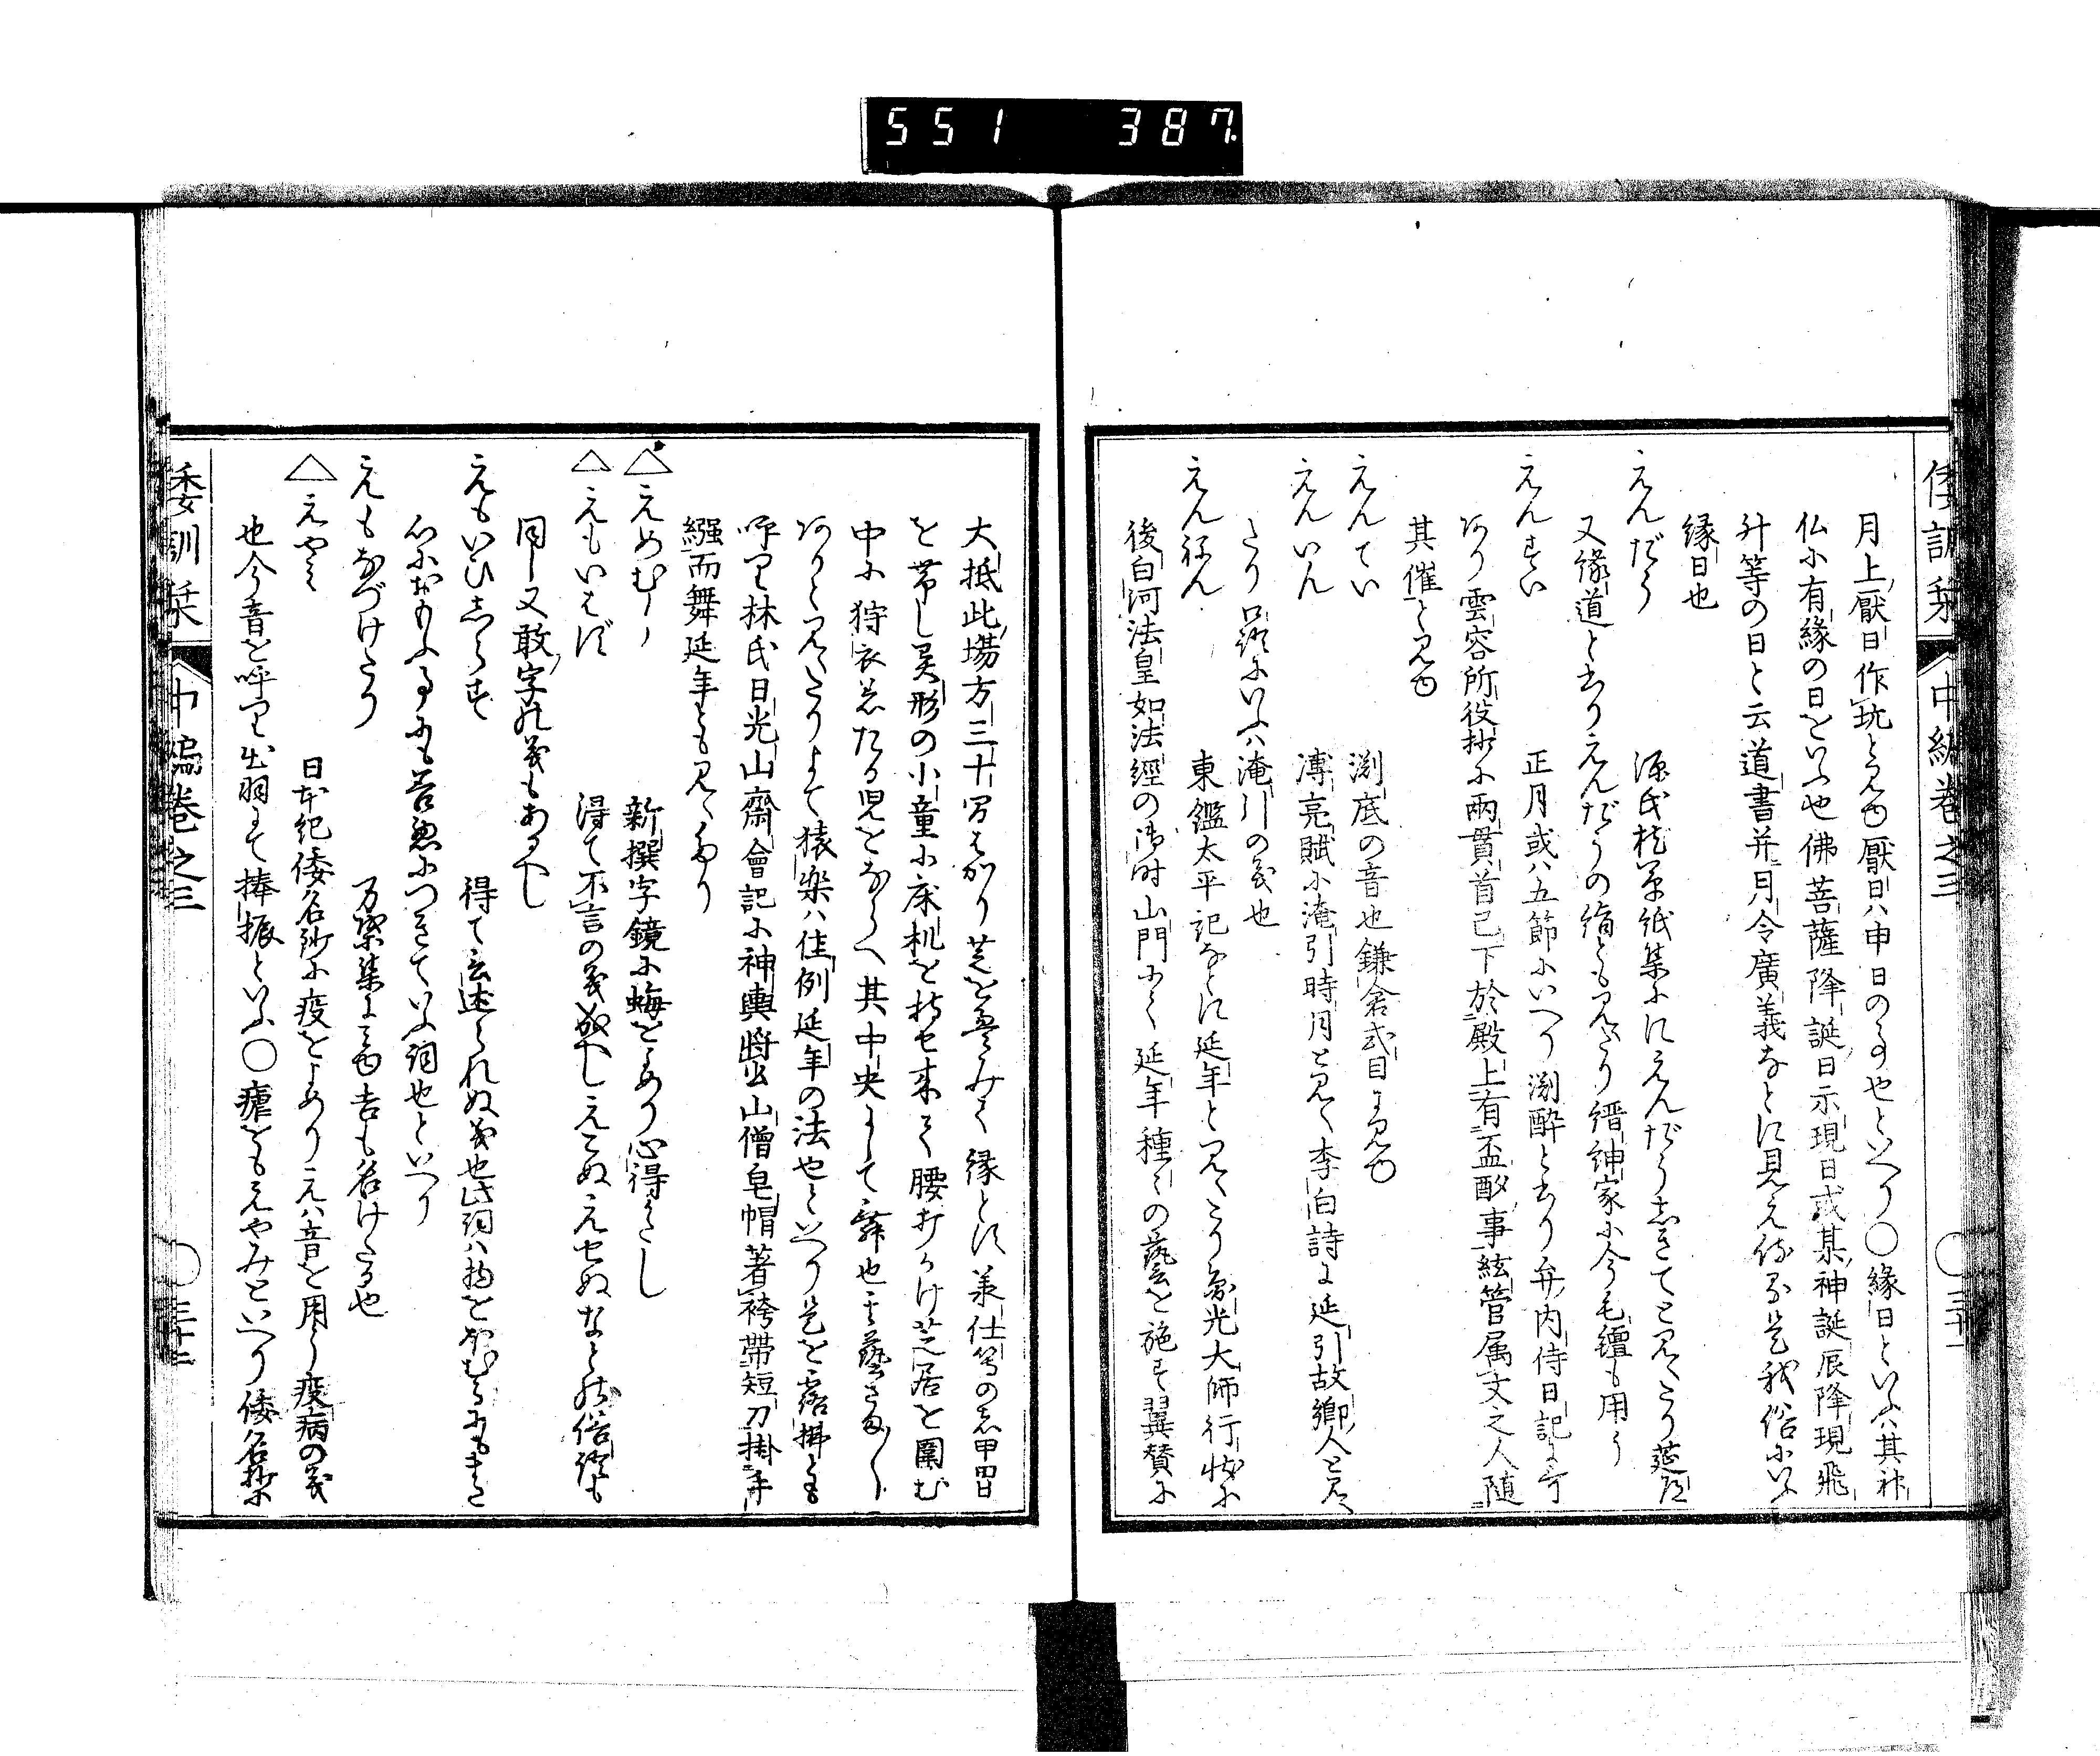 551 387
倭訓栞 中編巻之三 ○三十一
月上厭日作玩と見ゆ厭日ハ申日の事也といへり○縁日といふハ其神
仏に有縁の日をいふ也佛菩薩降誕日示現日或某神誕辰降現飛
升等の日と云道書并月令廣義なとに見え侍る是我俗にいふ
縁日也
えんだう 源氏枕草紙集にえんだうしきてと見えたり莚道
又縁道と書りえんだうの絹とも見えたり縉紳家に今毛氈も用う
えんすい 正月或ハ五節にいへり淵酔と書り弁内侍日記に
あり雲容所役抄に兩貫首已下於殿上有盃酌事絃管属文之人随
其催と見ゆ
えんてい 淵底の音也鎌倉式目に見ゆ
えんいん 傅亮賦に淹引時月と見え李白詩に延引故郷人と見え
たり口語にいふハ淹引の義也
えんねん 東鑑太平記なとに延年と見えたり圓光大師行状に
後白河法皇如法經の御時山門にて延年種々の藝を施す翼賛に
大抵此場方三十間はかり芝を畳みて縁とす兼仕等の者甲冑
を帯し異形の小童に床机を持せ来て腰打かけ芝居を圍む
中に狩衣着たる児をならへ其中央にして舞也其藝さま〳〵
ありと見えたりよて猿楽ハ往例延年の法也といへり是を露拂とも
呼り林氏日光山齋會記に神輿將出山僧皂帽著袴帶短刀掛手
繦而舞延年とも見えたり
△えめむし 新撰字鏡に蛞をよめり心得かたし
△えもいはず 得て不言の義成へしえこぬえせぬなとの俗語も
同し又敢字の義もあるへし
えもいひしらす 得て云述られぬ義也此詞ハ物をほむるにもまた
心におもふ事にも善悪につきていふ詞也といへり
えもなづけたり 万葉集に見ゆ吉も名けたる也
△えやみ 日本紀倭名鈔に疫をよめりえハ音を用う疫病の義
也今音を呼り出羽にて捧振といふ○瘧をもえやみといへり倭名抄に
倭訓栞 中編巻之三 ○三十二